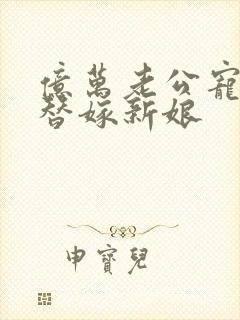 億萬老公寵
替嫁新娘
申寶兒